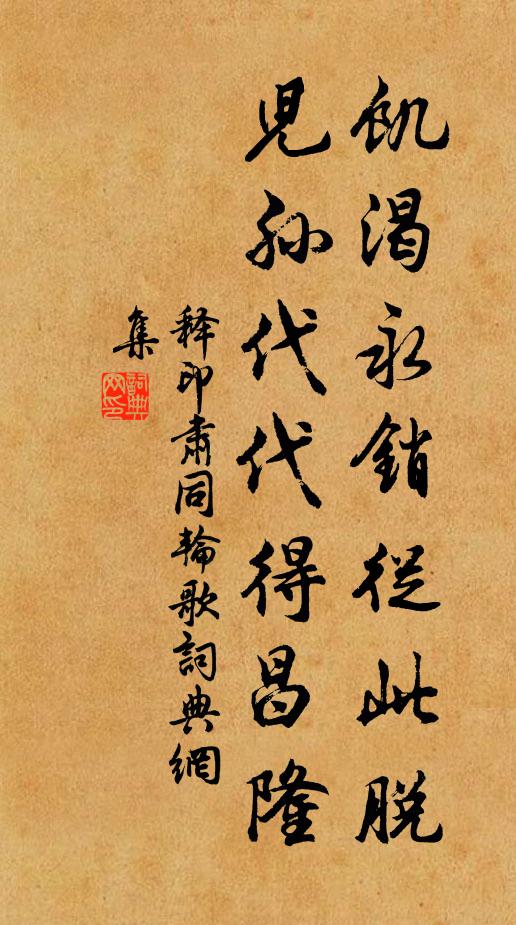 飢渴永銷從此脫
兒孫代代得昌隆
释印肅同輪歌詞典網
集
詞典
网印